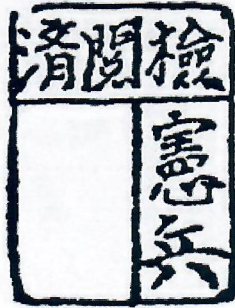 檢閲濟
憲兵